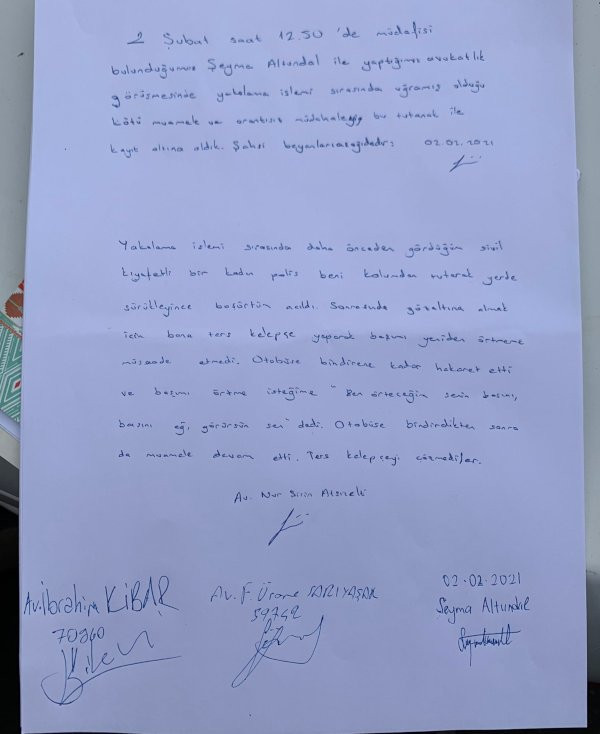 2 Şubat saat 12.50 'de müdafisi
bulunduğumuz Şeyma Altundal ile yaptığımız avukatlık
görüşmesinde yakalama işlemi sırasında uğramış olduğu
kötü muamele ve orantısız müdahaleyi bu tutanak ile
kayıt altına aldık. Şahsi beyanları aşağıdadır: 02.02.2021
Yakalama işlemi sırasında daha önceden gördüğüm sivil
kıyafetli bir kadın polis beni kolumdan tutarak yerde
sürükleyince başörtüm açıldı. Sonrasında gözaltına almak
için bana ters kelepçe yaparak başımı yeniden örtmeme
müsaade etmedi. Otobüse bindirene kadar hakaret etti
ve başımı örtme isteğime "Ben örteceğim senin başını,
başını eğ, görürsün sen" dedi. Otobüse bindirdikten sonra
da muamele devam etti. Ters kelepçeyi çözmediler.
Av. Nur Sirin
Av. İbrahim KİBAR
70260
Av. F. SARIYAŞAR
59742
02.02.2021
Şeyma Altundal